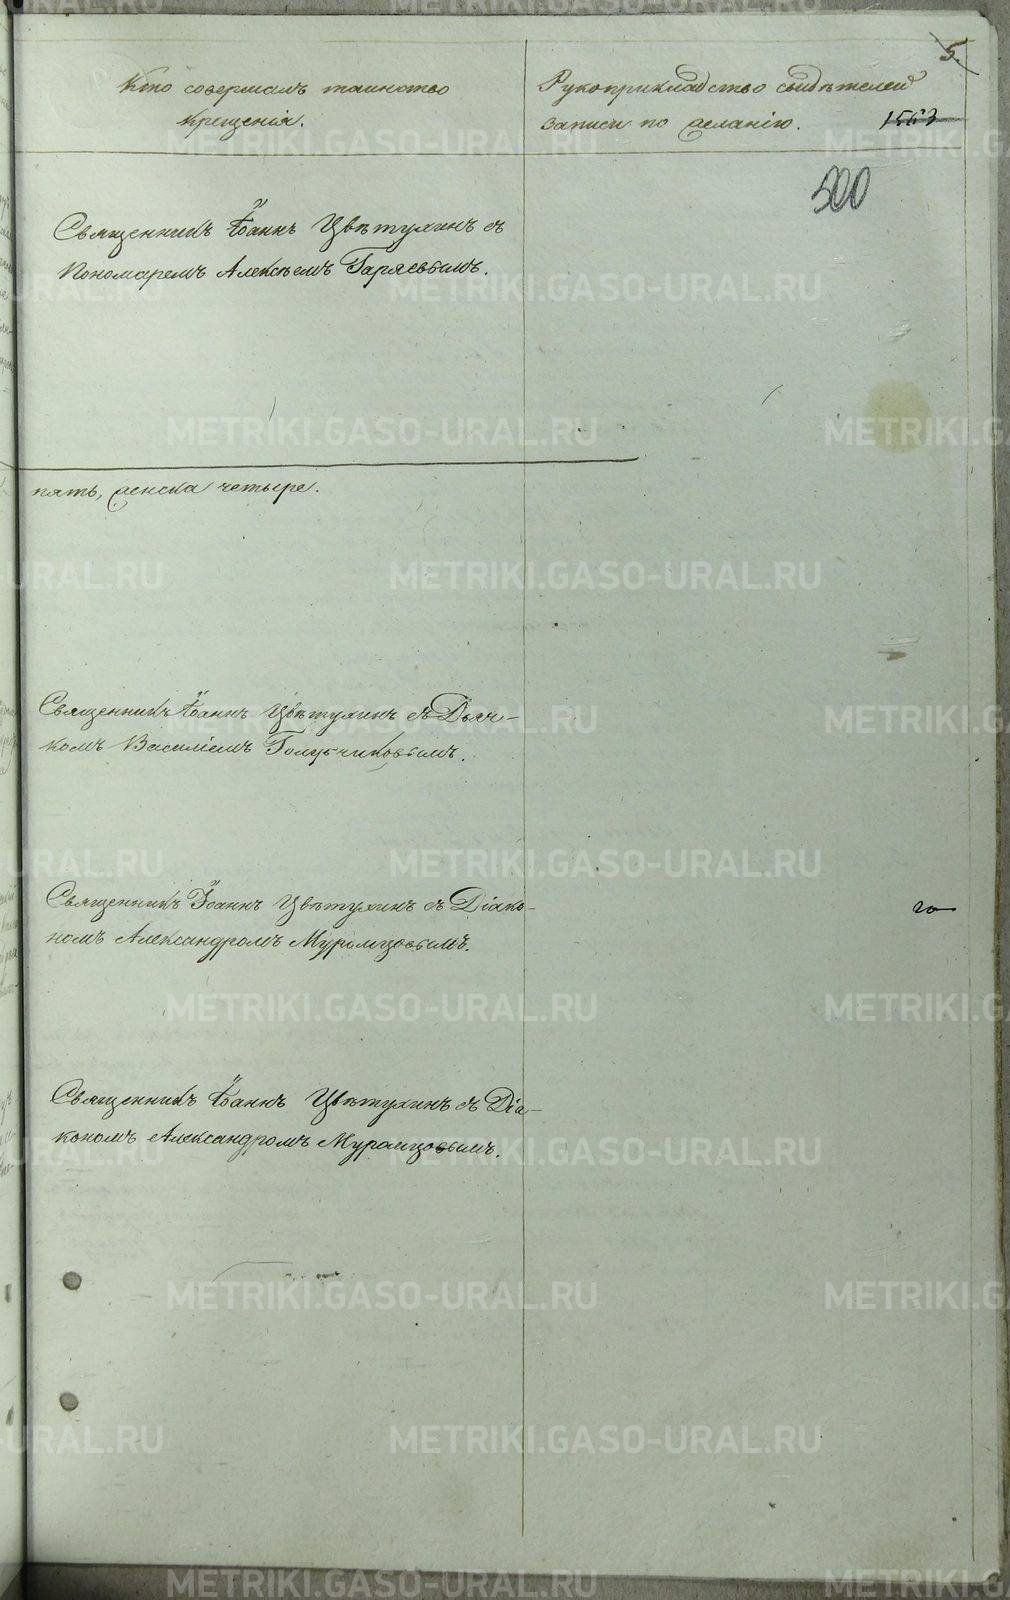 5.
Кто совершалъ таинство
крещенія.
Рукоприкладство свидѣтелей
записи по желанію.
1563
500
Священникъ Іоаннъ Цвѣтухинъ съ
Пономаремъ Алексѣемъ Гаряевымъ.
пять, женска четыре.
Священникъ Іоаннъ Цвѣтухинъ съ Дьяч-
комъ Василіемъ Голубчиковымъ.
Священникъ Іоаннъ Цвѣтухинъ съ Діако-
номъ Александромъ Муромцовымъ.
Священникъ Іоаннъ Цвѣтухинъ съ Діа-
кономъ Александромъ Муромцовымъ.
METRIKI.GASO-URAL.RU